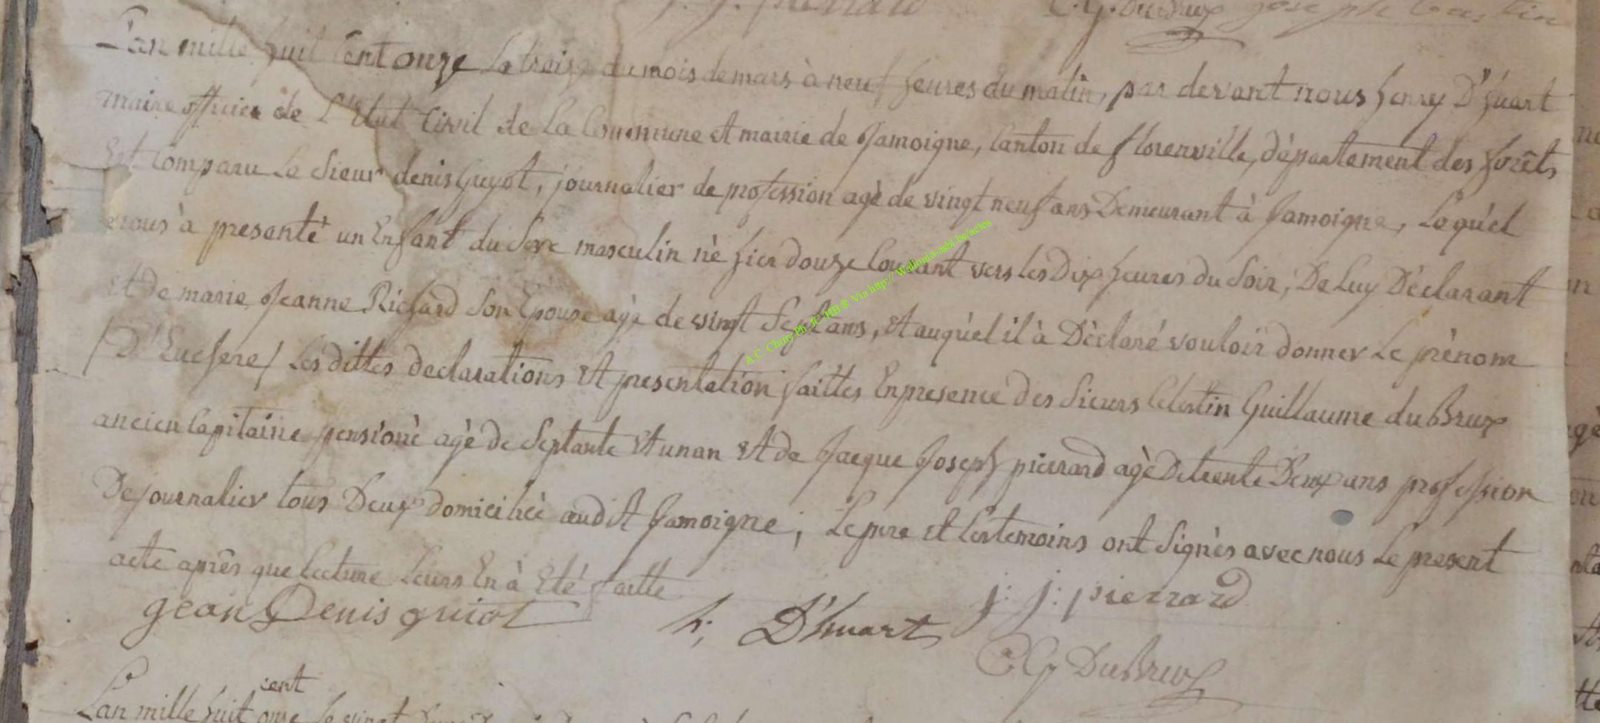 j. j. pierrard C. G. DuBrux joseph
L'an mille huit cent onze le treize du mois de mars à neuf heures du matin, par devant nous henry D'huart
maire officier de L'Etat Civil de la Commune et mairie de Jamoigne, Canton de florenville, département des forêts
Est comparu le Sieur denis Guyot, journalier de profession agè de vingt neuf ans Demeurant à Jamoigne, Lequ'el
nous à presenté un Enfant du Sexe masculin nè hier douze Courant vers les Dix heures du Soir, De Luy Dèclarant
et de marie Jeanne Richard Son Epouse agé de vingt Sept ans, et auquèl il à Dèclaré vouloir donner Le prènom
D'Euchere/ Les dittes declarations et presentation faittes En presence des Sieurs Celestin Guillaume du Brux
ancien Capitaine pensionè agè de Septante et un an et de Jacque Joseph pierrard agè De trente Deux ans profession
De journalier tous Deux domicilièe audit Jamoigne; Le pere et les temoins ont Signès avec nous Le present
acte après que lecture Leurs En à Eté faitte
gean Denis guiot h; D'huart j: j: pierrard
C G DuBrux
L'an mille huit cent onze le vingt
A.C. Chiny Via http://